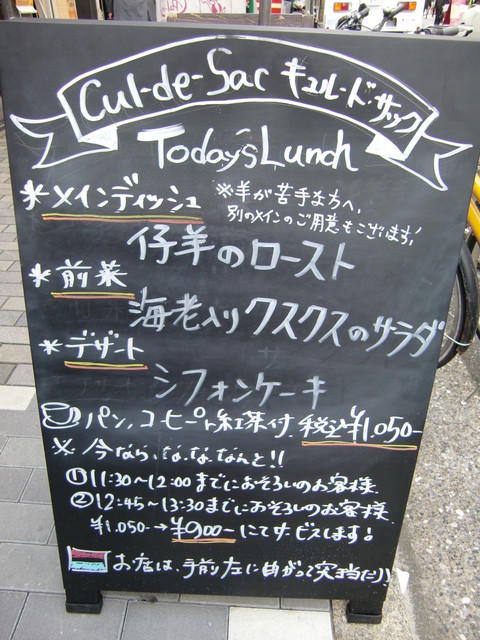 Cul-de-Sac キュル・ド・サック
Today's Lunch
*メインディッシュ
※羊が苦手な方へ、
別のメインのご用意もございます!
仔羊のロースト
*前菜
海老入りクスクスのサラダ
*デザート
シフォンケーキ
パン、コーヒー又ト紅茶付、税込¥1,050-
※今なら、な、な、なんと!!
①11:30〜12:00までにおそろいのお客様、
②12:45〜13:30までにおそろいのお客様、
¥1,050-→¥900-にてサービスします。
お店は、手前左に曲がって突当たり!!